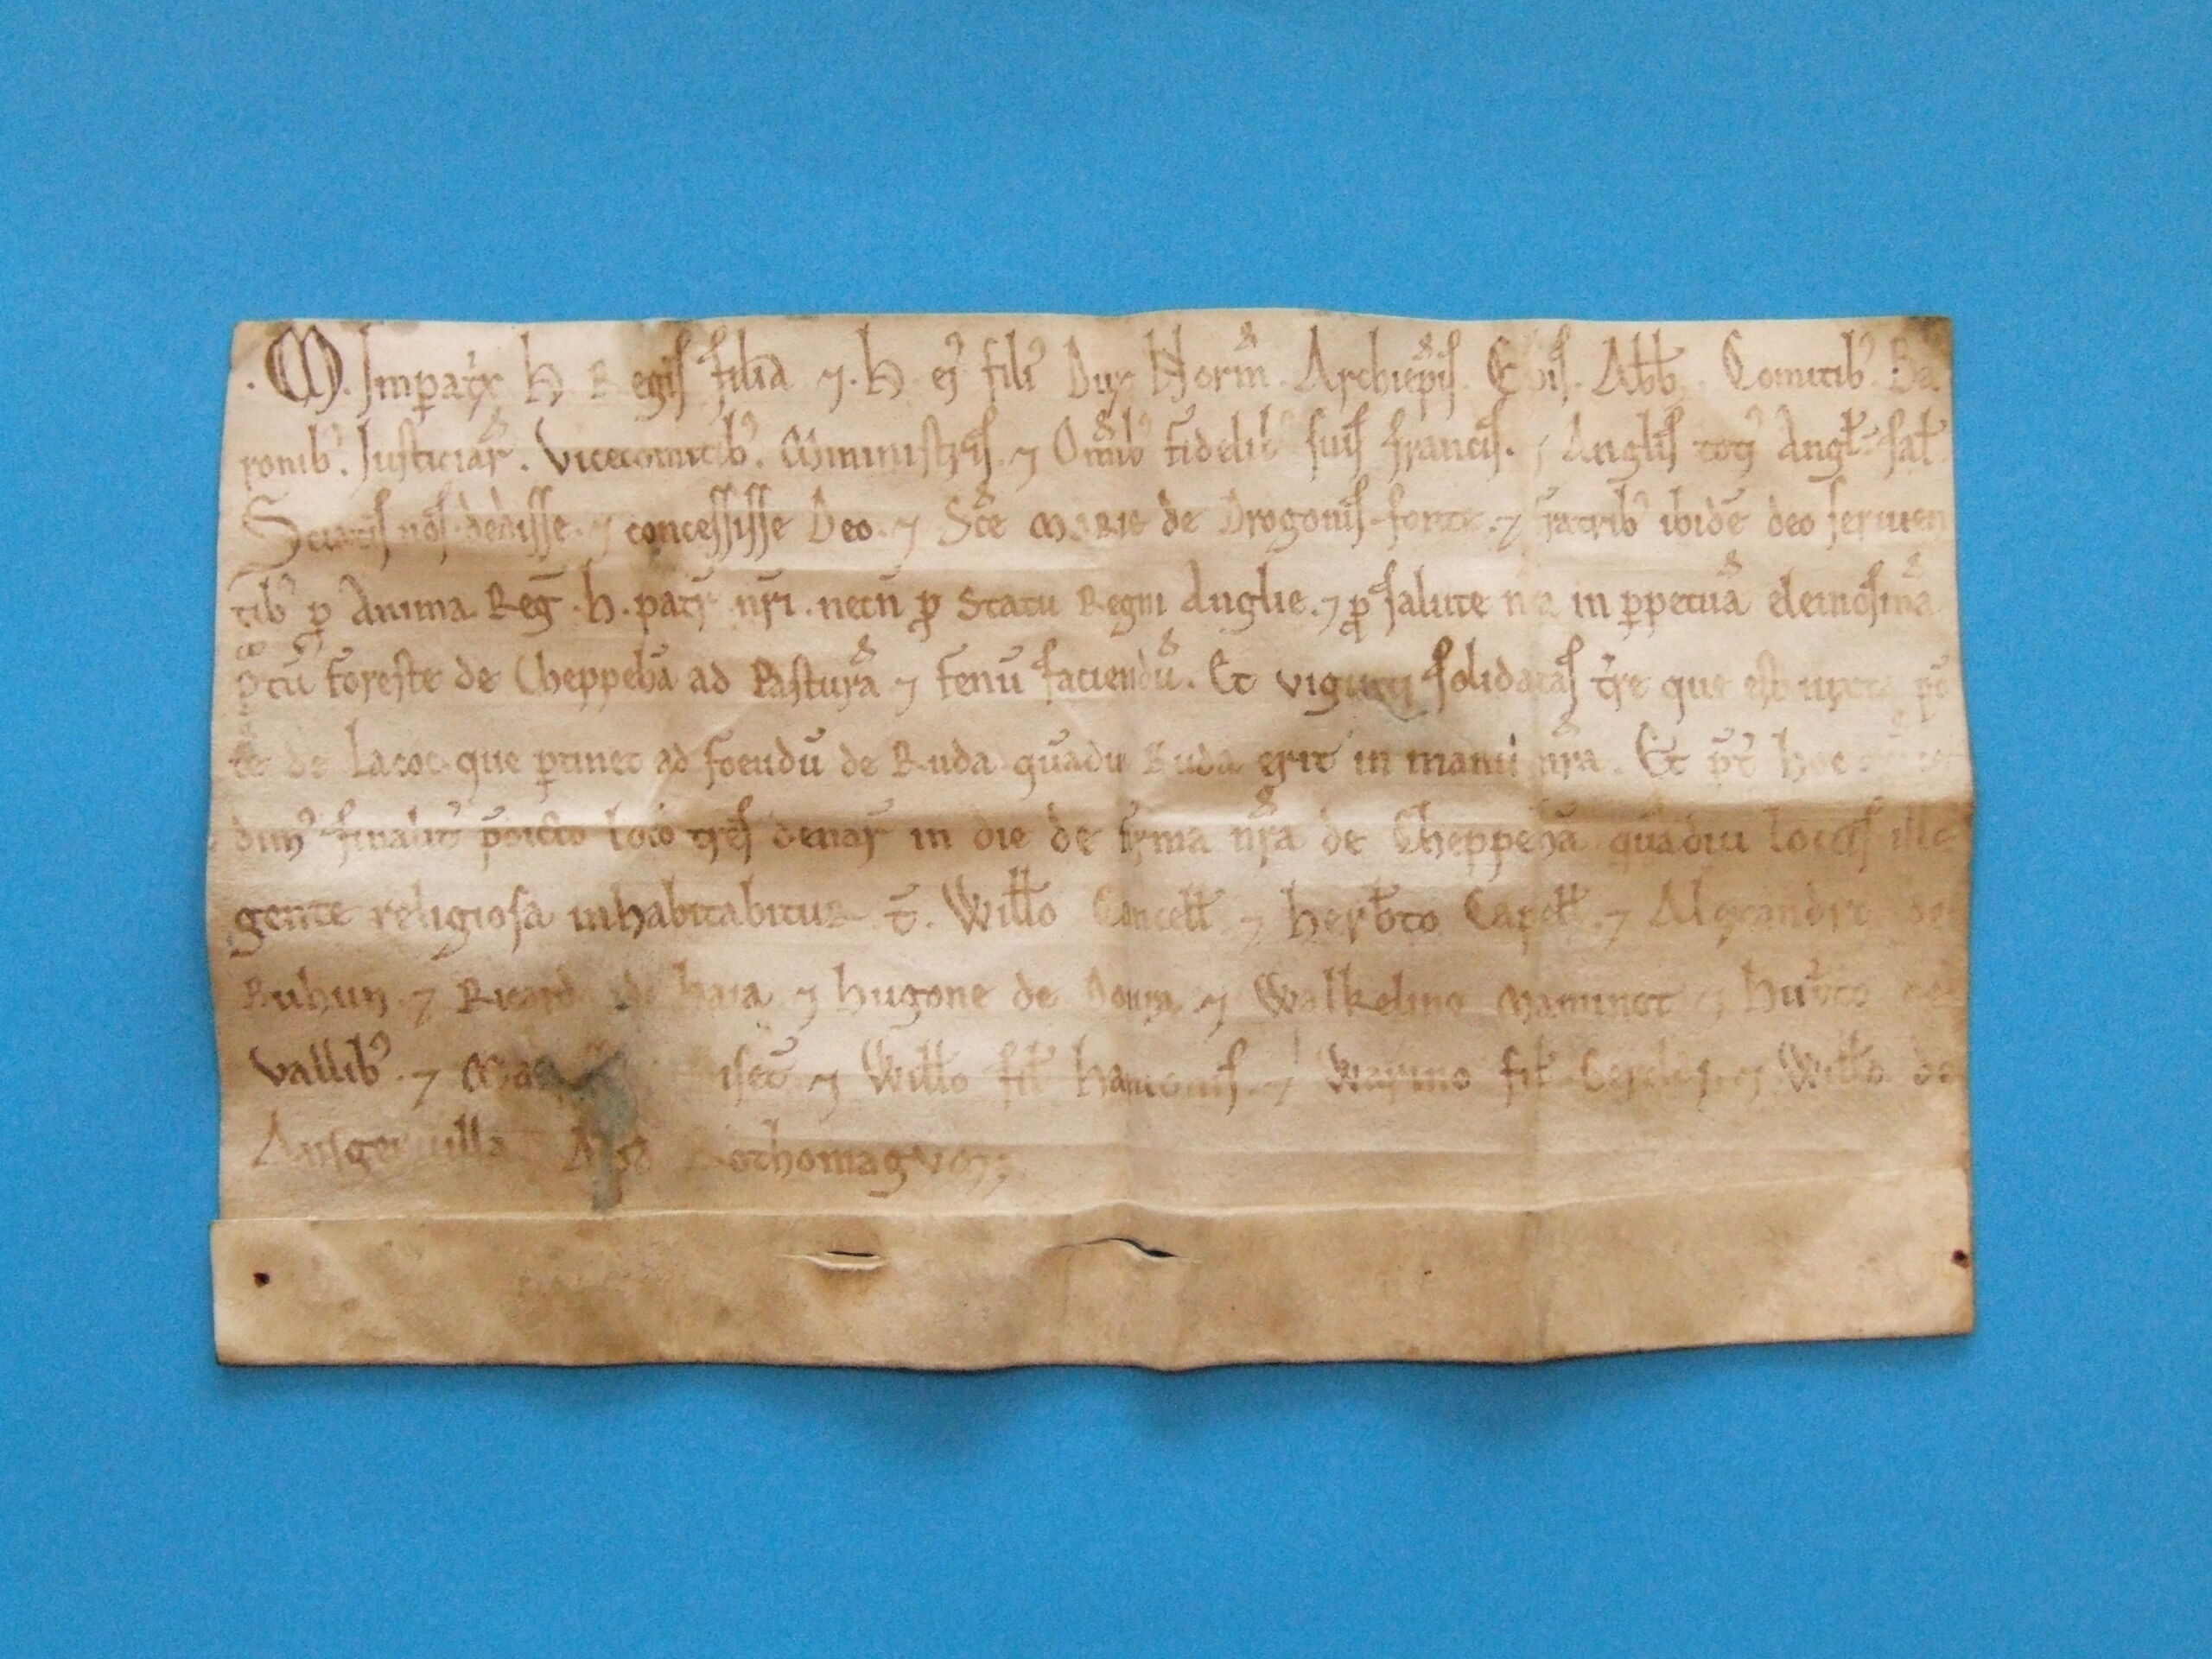 .M. Imp̲at͛x H Regis filia ⁊ .H. ej᾽ fili᾽ Dux Norm̃. Archiep̃is. Ep̃is. Abb̃. Comitib᾽. Ba
ronib᾽. Justiciar̃. Vicecomitib᾽. Ministris. ⁊ Om̃ib᾽ fidelib᾽ suis francis. ⁊ Anglis toti᾽ Angl̃. sal̃
Sciatis nos dedisse. ⁊ concessisse Deo. ⁊ Sc̃e MARIE de Drogonis fonte. ⁊ fratrib᾽ ibidẽ deo seruien
tib᾽ p̲ Anima Reg̃ .h. patr̃ nr̃i. necñ ꝓ Statu Regni Anglie. ⁊ ꝓ salute nr̃a in p̲petuã elemosinã
cũ foreste de Cheppehã ad Pasturã ⁊ fenũ faciendũ. Et viginti solidatas t͛re que est iuxta põ
te de Lacoc que p̲tinet ad foeudũ de Ruda quãdiu Ruda erit in manu nr̃a. Et p̃t᾽ hoc
dim᾽ finalit᾽ p̃dicto loco tres denar̃ in die de firma nr̃a de Cheppehã quãdiu locus ille
gente religiosa inhabitabitur T̃. Will̃o Cancell̃ ⁊ herb̃to Capell̃. ⁊ Alexandro de
Buhun ⁊ Ricard de haia ⁊ hugone de Doura ⁊ Walkelino Maminot ⁊ hub̃to de
vallib᾽. ⁊ Ma iset̃ ⁊ Will̃o fil̃ hamonis. ⁊ Warino fil̃ Geroldi. ⁊ Will̃o de
Ansgeruilla Apd̃ Rothomagum;